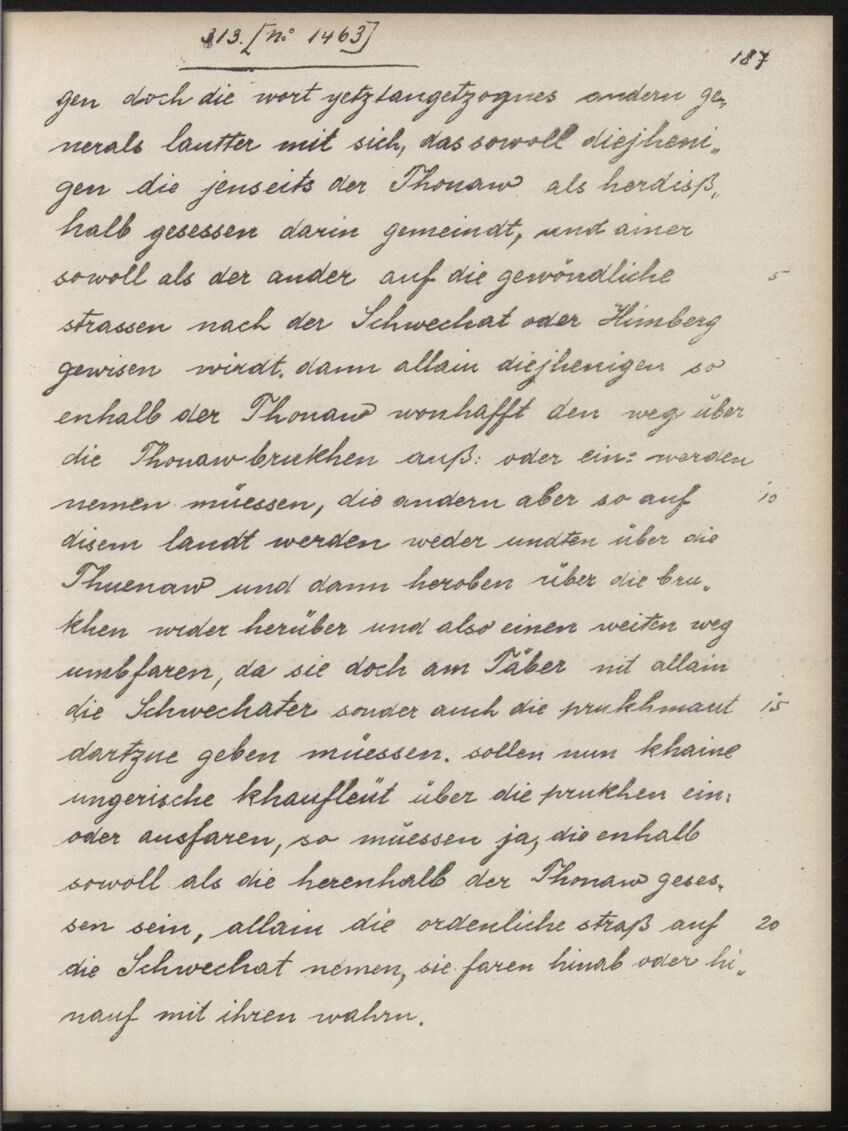 313. [No 1463]
187
gen doch die wort yetztangetzognes andern ge„
nerals lautter mit sich, das sowoll diejheni„
gen die jenseits der Thonaw als herdiß„
halb gesessen darin gemeindt, und ainer
sowoll als der ander auf die gewöndliche 5
strassen nach der Schwechat oder Himberg
gewisen wirdt. dann allain diejhenigen so
enhalb der Thonaw wonhafft den weg über
die Thonawbrukhen auß: oder ein: werden
nemen müessen, die andern aber so auf 10
disem landt werden weder undten über die
Thuenaw und dann heroben über die bru„
khen wider herüber und also einen weiten weg
umbfaren, da sie doch am Täber nit allain
die Schwechater sonder auch die prukhmaut 15
dartzue geben müessen. sollen nun khaine
ungerische khaufleüt über die prukhen ein:
oder ausfaren, so müessen ja, die enhalb
sowoll als die herenhalb der Thonaw geses„
sen sein, allain die ordenliche straß auf 20
die Schwechat nemen, sie faren hinab oder hi„
nauf mit ihren wahrn.